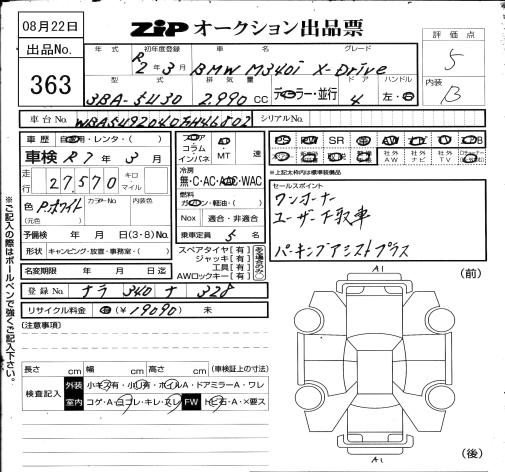 08月22日
ZIP オークション出品票
評価点
5
内装
B
出品No.
363
年式 初年度登録 車名 グレード
R2年3月 BMW M340i X-Drive
型式 排気量 ドア ハンドル
3BA-5U30 2.990cc ディーラー・並行 4 左・右
車台No. シリアルNo.
車歴 自家用・レンタ・( )
車検 R7年3月
走行 27570 キロ マイル
色 P.ホワイト カラーNo. 内装色
(元色)
予備検 年 月 日(3・8)No.
形状 キャンピング・放置・事務室・( )
名変期限 年 月 日迄
フロア コラム インパネ AT MT 速
冷房
無・C・AC・AAC・WAC
燃料
ガソリン・軽油・( )
Nox 適合・非適合
乗車定員 5名
スペアタイヤ[有]
ジャッキ[有]
工具[有]
AWロックキー[有]
PS PW SR AW ナビ TV
社外AW 社外ナビ 社外TV
※上記太枠内は標準装備品
セールスポイント
ワンオーナー
ユーザー下取車
パーキングアシストプラス
登録No. ナラ 340 ナ 328
リサイクル料金 済(¥19090) 未
[注意事項]
長さ cm 幅 cm 高さ cm (車検証上の寸法)
検査記入
外装 小キズ有・小凹有・ホイルA・ドアミラーA・ワレ
室内 コゲA・ヨゴレ・キレ・スレ FW トビ石・A・×要ス
※ご記入の際はボールペンで強くご記入下さい。
(前)
A1
A1
(後)